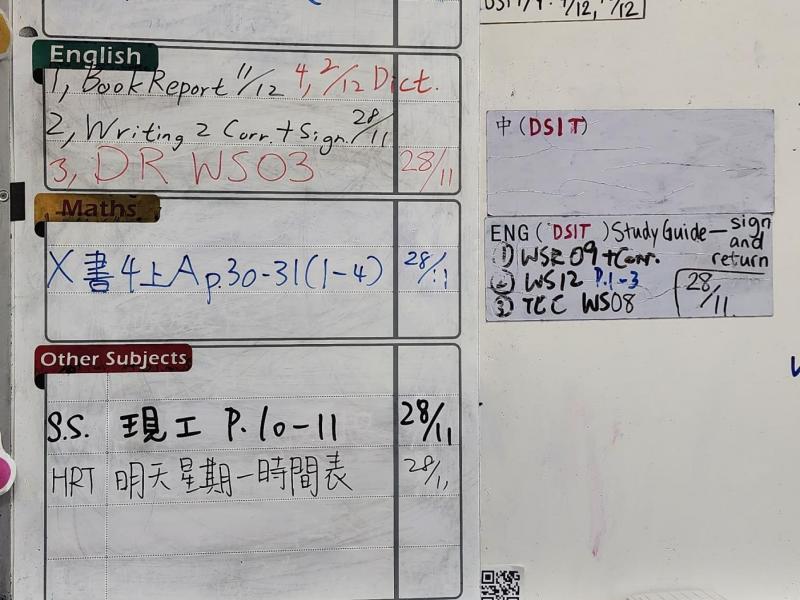 English
1, Book Report 11/12 4, 2/12 Dict.
2, Writing 2 Corr. + Sign. 28/11
3, DR WS03 28/11
Maths
X 書4上A p.30-31(1-4) 28/11
Other Subjects
S.S. 現工 P.10-11 28/11
HRT 明天星期一時間表 28/11
/12, /12
中(DSIT)
ENG(DSIT)Study Guide— sign and return
① WSR 09 + Corr.
② WS12 P.1-3
③ TCC WS08 28/11